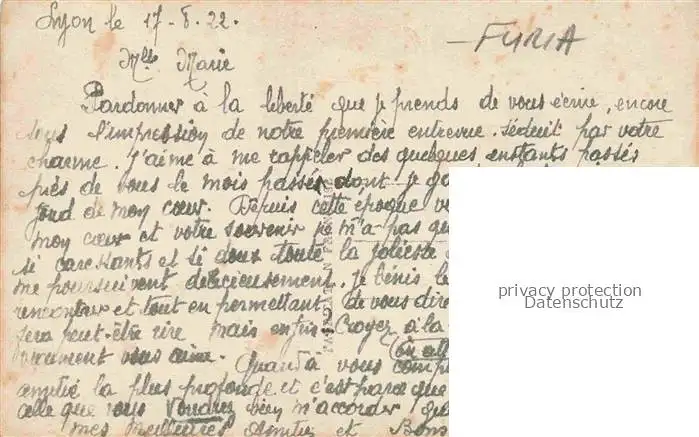 Lyon le 17-8-22.
- FURIA
Mlle Marie
Pardonner à la liberté que je prends de vous écrire, encore
sous l'impression de notre première entrevue. Séduit par votre
charme. J'aime à me rappeler des quelques enstants passés
près de vous le mois passés dont je
fond de mon cœur. Depuis cette époque
mon cœur et votre souvenir je m'a pas
si caressants et si doux toute la
me poursuivent délicieusement. Je bénis le
rencontrer et tout en permettant de vous dire
fera peut-être rire mais enfin Croyez à la
vraiment vous aime.
Quand à vous
amitié la plus profonde et c'est parce que
celle que vous Voudrez bien m'accorder
mes meilleures Amitiés et Bons
FABRICATION FRANÇAISE
privacy protection
Datenschutz